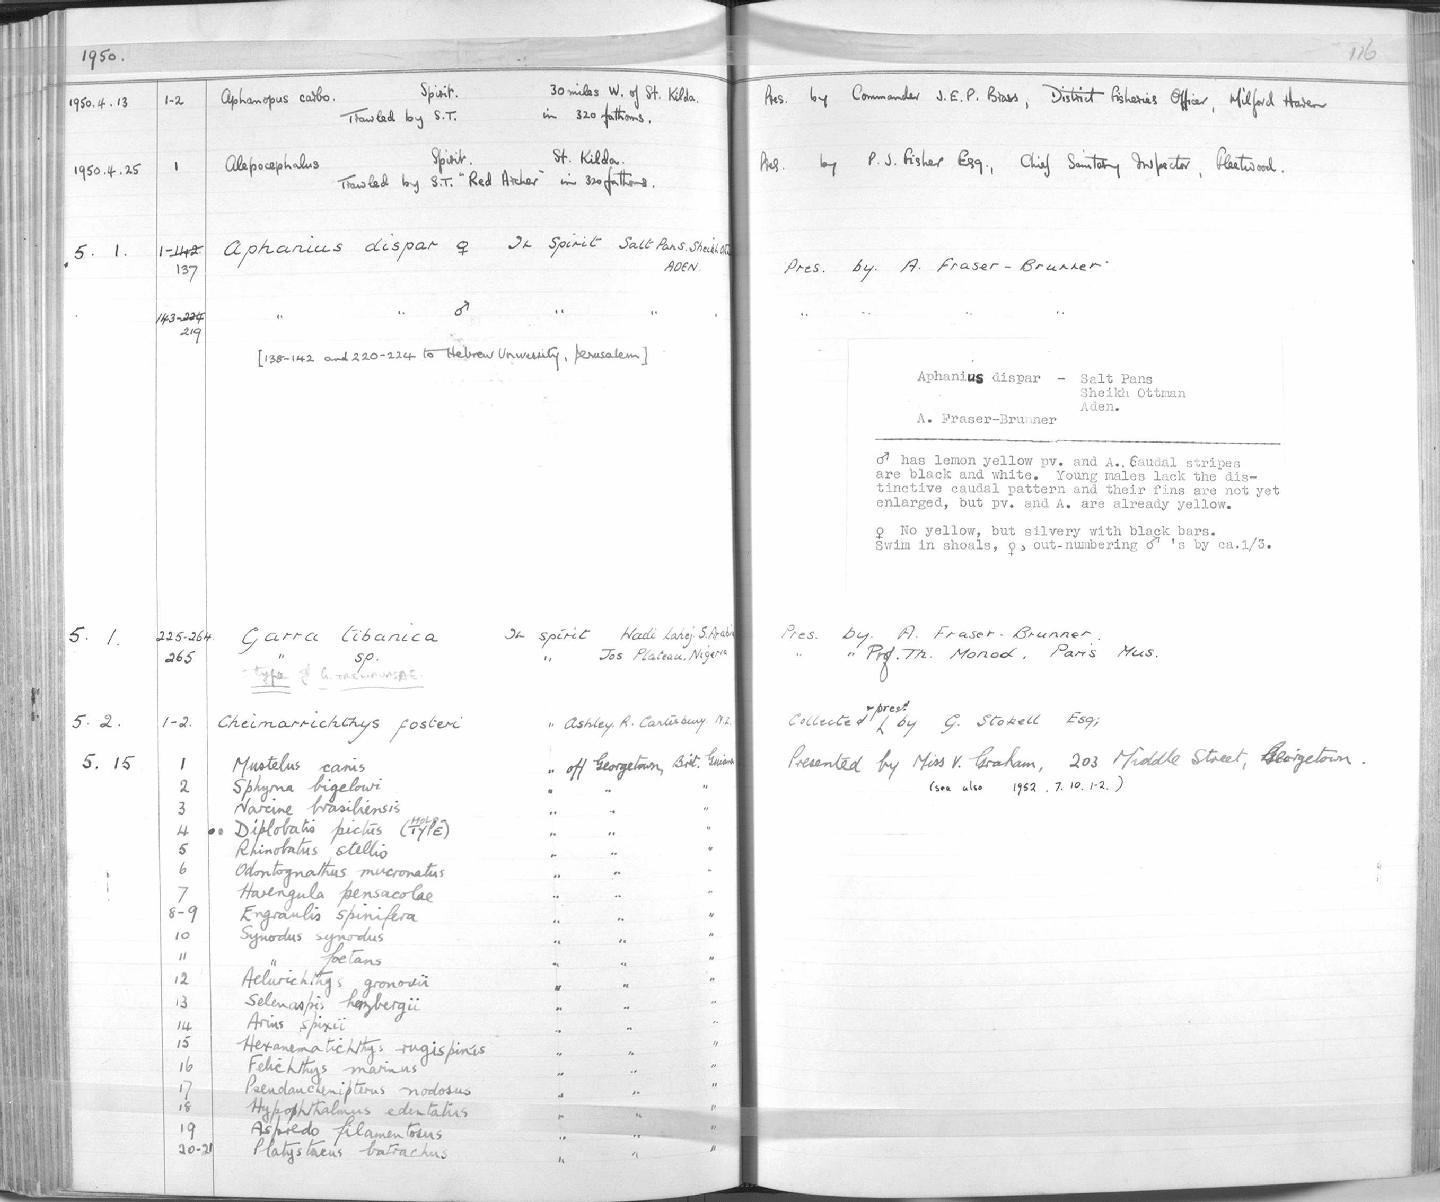 1950.
116
1950.4.13 1-2 Aphanopus carbo. Spirit. 30 miles W. of St. Kilda. Pres. by Commander J.E.P. Brass, District Fisheries Officer, Milford Haven
Trawled by S.T. in 320 fathoms.
1950.4.25 1 Alepocephalus Spirit. St. Kilda. Pres. by P.J. Fisher Esq., Chief Sanitary Inspector, Fleetwood.
Trawled by S.T. "Red Archer" in 320 fathoms.
5. 1. 1-142 Aphanius dispar ♀ In Spirit Salt Pans. Sheikh
137 ADEN. Pres. by. A. Fraser-Brunner
143-224 " " ♂ " " " " " " "
219
[138-142 and 220-224 to Hebrew University, Jerusalem]
Aphanius dispar - Salt Pans
Sheikh Ottman
Aden.
A. Fraser-Brunner
♂ has lemon yellow pv. and A., Caudal stripes
are black and white. Young males lack the dis-
tinctive caudal pattern and their fins are not yet
enlarged, but pv. and A. are already yellow.
♀ No yellow, but silvery with black bars.
Swim in shoals, ♀, out-numbering ♂ 's by ca.1/3.
5. 1. 225-264 Garra tibanica In spirit Wadi Lahej. S. Arabia Pres. by. A. Fraser-Brunner.
265 " sp. " Jos Plateau. Nigeria " " Prof. Th. Monod. Paris Mus.
type of G.
5. 2. 1-2. Cheimarrichthys fosteri " Ashley. R. Canterbury N.Z. Collected + presd by G. Stokell Esq;
5. 15 1 Mustelus canis " off Georgetown, Brit. Guiana Presented by Miss V. Graham, 203 Middle Street, Georgetown.
2 Sphyrna bigelowi " " " (see also 1952.7.10.1-2.)
3 Narcine brasiliensis " " "
4 Diplobatis pictus (HOLOTYPE) " " "
5 Rhinobatus stellio " " "
6 Odontognathus mucronatus " " "
7 Harengula pensacolae " " "
8-9 Engraulis spinifera " " "
10 Synodus synodus " " "
11 " foetans " " "
12 Aelurichthys gronovii " " "
13 Selenaspis herzbergii " " "
14 Arius spixii " " "
15 Hexanematichthys rugispinis " " "
16 Felichthys marinus " " "
17 Pseudauchenipterus nodosus " " "
18 Hypophthalmus edentatus " " "
19 Aspredo filamentosus " " "
20-21 Platystacus batrachus " " "